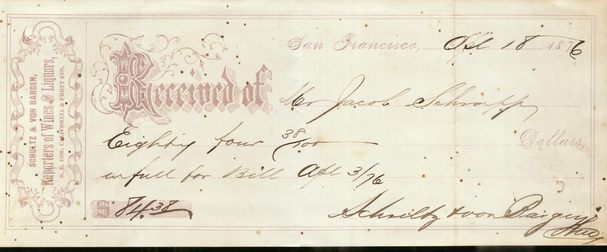 SCHULTZ & VON BARGEN,
Importers of Wines & Liquors,
S. E. COR. CALIFORNIA & FRONT STS.
San Francisco, Apl 18 1876
Received of Mr Jacob Schrapp
Eighty four 38/100 Dollars,
in full for Bill Apl 3/76
$ 84.38
Schultz & von Bargen